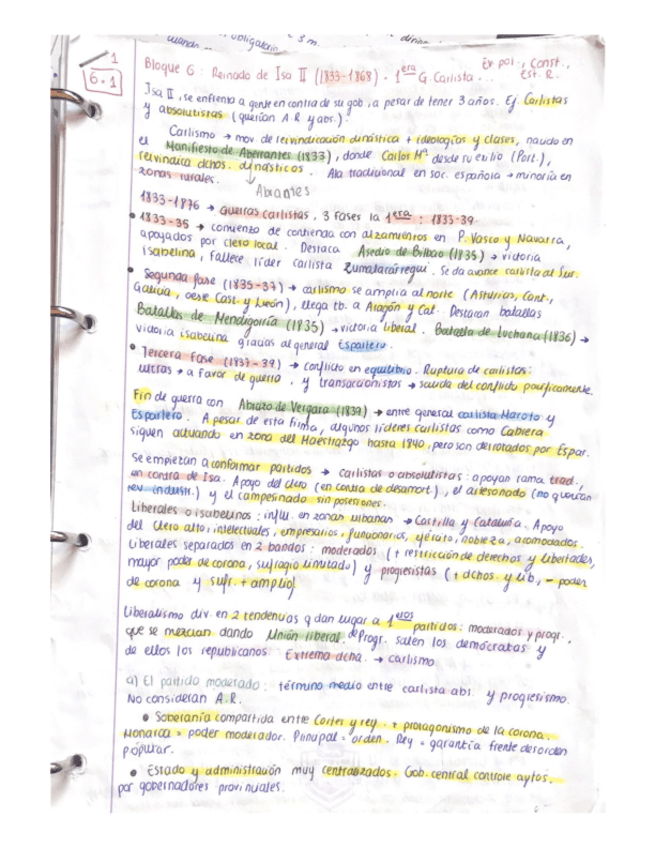 obligatorio 3 m.
1
6.1
Bloque 6: Reinado de Isa II (1833-1868). 1era G. Carlista... Ev pol., Const., Est. R.
Isa II, se enfrenta a gente en contra de su gob, a pesar de tener 3 años. Ej. Carlistas
y absolutistas (querían A.R y abs.).
Carlismo → mov. de reivindicación dinástica + ideologías y clases, nacido en
el Manifiesto de Aberrantes (1833), donde Carlos Mª desde su exilio (Port.),
reivindica dchos. dinásticos. Ala tradicional en soc. española → minoría en
zonas rurales.
Abrantes
1833-1876 → Guerras carlistas, 3 fases la 1era: 1833-39.
• 1833-35 → comienzo de contienda con alzamientos en P. Vasco y Navarra,
apoyados por clero local. Destaca Asedio de Bilbao (1835) → victoria
isabelina, fallece líder carlista Zumalacárregui. Se da avance carlista al Sur.
• Segunda fase (1835-37) → carlismo se amplía al norte (Asturias, Cant.,
Galicia, oeste Cast. y León), llega tb. a Aragón y Cat. Destacan batallas
Batallas de Mendigorría (1835) → victoria liberal. Batalla de Luchana (1836) →
victoria isabelina gracias al general Espartero.
• Tercera Fase (1837-39) → conflicto en equilibrio. Ruptura de carlistas:
ultras → a favor de guerra, y transaccionistas → salida del conflicto pacíficamente.
Fin de guerra con Abrazo de Vergara (1839) → entre general carlista Maroto y
Espartero. A pesar de esta firma, algunos líderes carlistas como Cabrera
siguen actuando en zona del Maestrazgo hasta 1840, pero son derrotados por Espar.
Se empiezan a conformar partidos → carlistas o absolutistas: apoyan rama trad.,
en contra de Isa. Apoyo del clero (en contra de desamort.), el artesonado (no querían
rev. industr.) y el campesinado sin posesiones.
Liberales o isabelinos: influ. en zonas urbanas → Castilla y Cataluña. Apoyo
del clero alto, intelectuales, empresarios, funcionarios, ejército, nobleza, acomodados.
Liberales separados en 2 bandos: moderados (+ restricción de derechos y libertades,
mayor poder de corona, sufragio limitado) y progresistas (+ dchos. y lib, - poder
de corona y sufr. + amplio)
Liberalismo div. en 2 tendencias q dan lugar a 1eros partidos: moderados y progr.,
que se mezclan dando Unión liberal. De Progr. salen los demócratas y
de ellos los republicanos. Extrema dcha. → carlismo
a) El partido moderado: término medio entre carlista abs. y progresismo.
No consideran A.R.
• Soberanía compartida entre Cortes y rey. + protagonismo de la corona.
Monarca = poder moderador. Principal = orden. Rey = garantía frente desorden
popular.
• Estado y administración muy centralizados. Gob. central controle aytos.
por gobernadores provinciales.